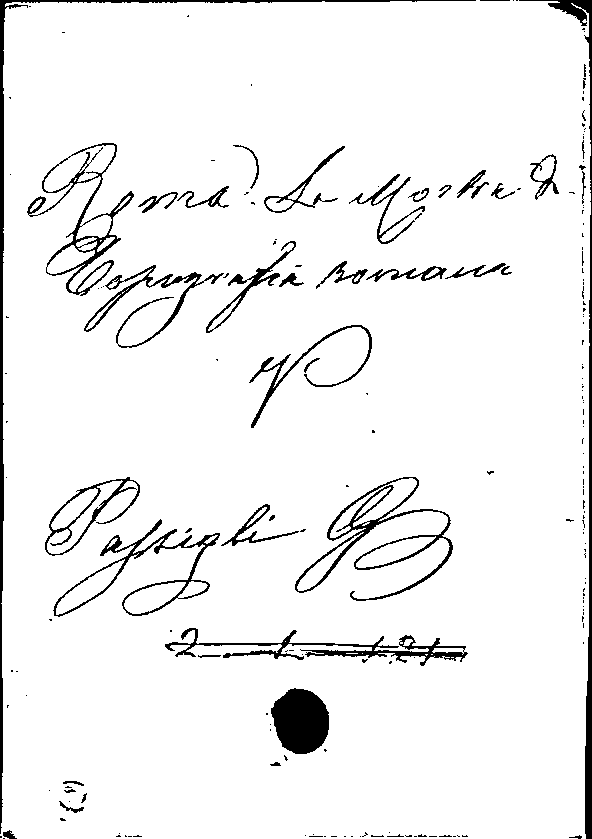 Roma. La Mostra di
Topografia romana
V
Passigli G B
2. 1. 1.21